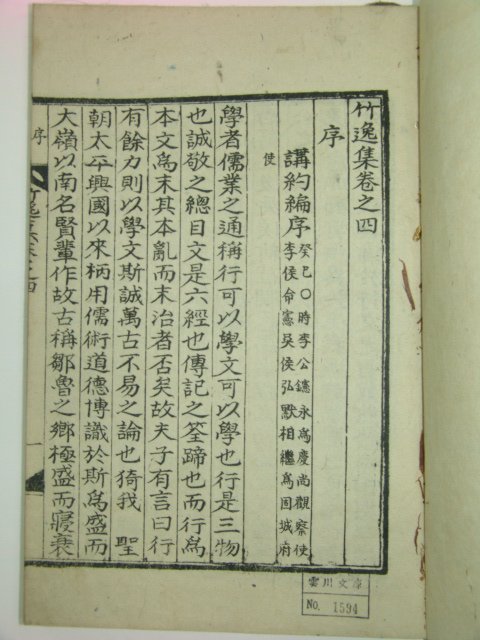 竹逸集卷之四
序
講約編序 癸巳〇時李公鑢永爲慶尙觀察使
李侯命憲吳侯弘默相繼爲固城府
使
學者儒業之通稱行可以學文可以學也行是三物
也誠敬之總目文是六經也傳記之筌蹄也而行爲
本文爲末其本亂而末治者否矣故夫子有言曰行
有餘力則以學文斯誠萬古不易之論也猗我 聖
朝太平興國以來柄用儒術道德博識於斯爲盛而
大嶺以南名賢輩作故古稱鄒魯之鄕極盛而寢衰
序
竹逸集卷之四
雲川文庫
No. 1594